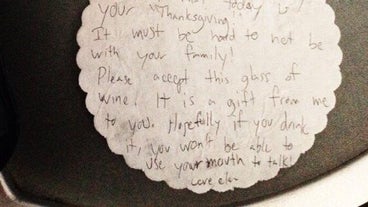 today
your "Thanksgiving"!
It must be hard to not be
with your family!
Please accept this glass of
wine. It is a gift from me
to you. Hopefully if you drink
it, you won't be able to
use your mouth to talk!
Love elan